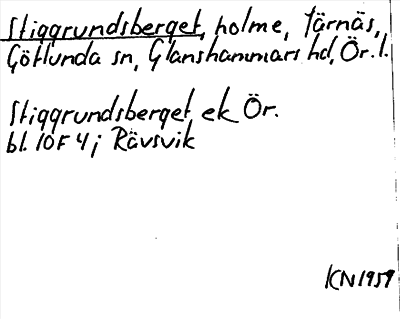 Stiggrundsberget, holme, Tärnäs,
Götlunda sn, Glanshammars hd, Ör. l.
Stiggrundsberget, ek Ör.
bl. 10F 4 j Rävsvik
KN 1959